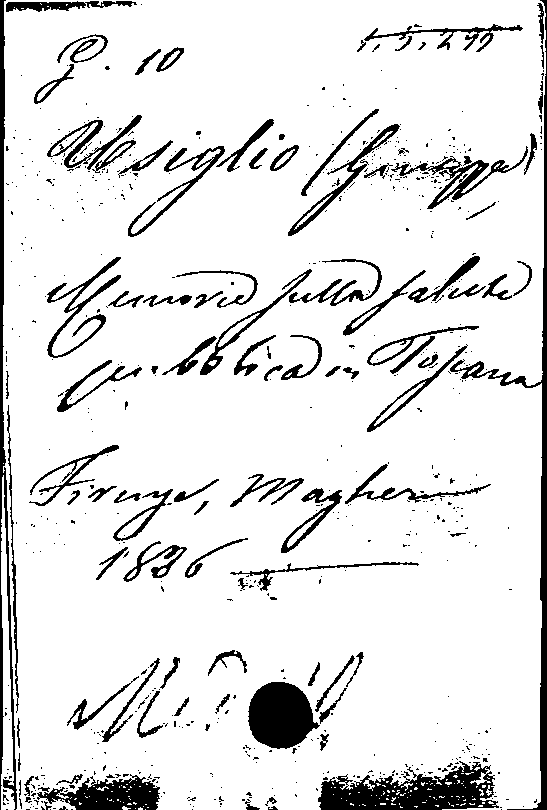 G. 10
1.5.299
Usiglio (Giuseppe)
Memorie sulla salute
pubblica in Toscana
Firenze, Magheri
1836